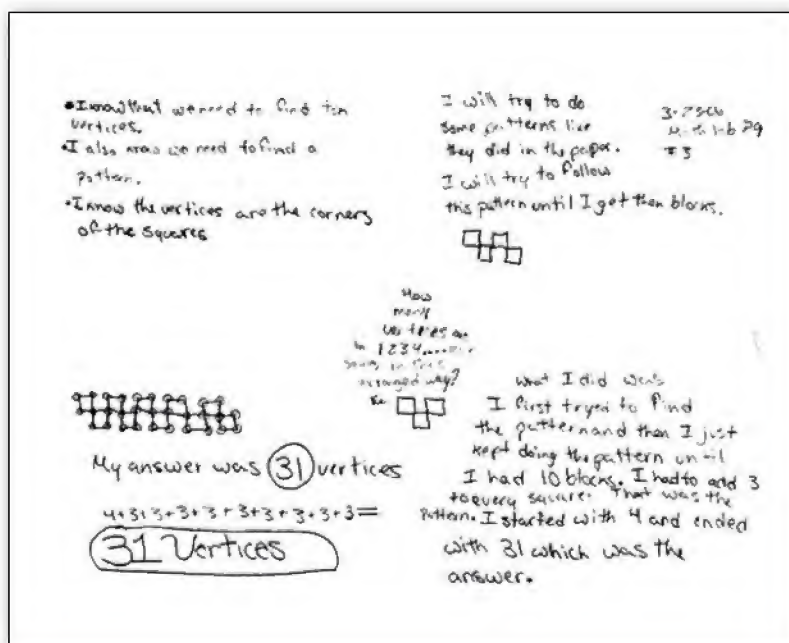 • I know that we need to find ten
vertices.
• I also know we need to find a
pattern.
• I know the vertices are the corners
of the squares
I will try to do
some patterns like
they did in the paper.
I will try to follow
this pattern until I get then blocks.
#3
How
many
vertices are
in 1234......
arranged way?
My answer was 31 vertices
4+3+3+3+3+3+3+3+3+3=
31 Vertices
what I did was
I first tryed to find
the pattern and then I just
kept doing the pattern until
I had 10 blocks. I had to add 3
to every square. That was the
pattern. I started with 4 and ended
with 31 which was the
answer.